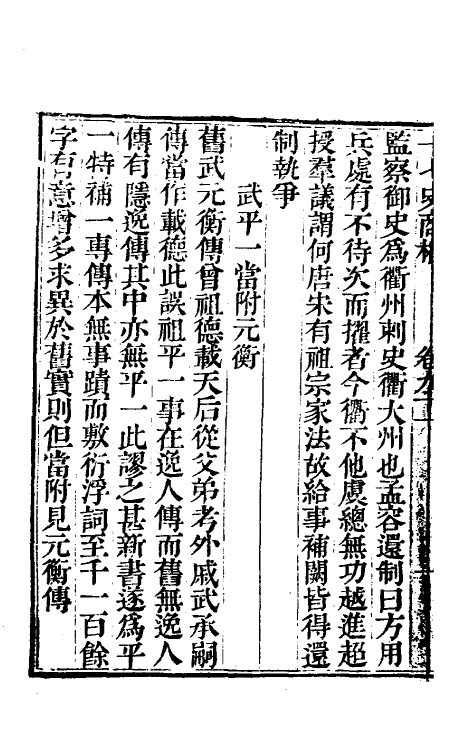 十七史商榷　卷九
監察御史爲衢州刺史衢大州也孟容還制曰方用
兵處有不待次而擢者今衢不他虞總無功越進超
授羣議謂何唐宋有祖宗家法故給事補闕皆得還
制執爭
武平一當附元衡
舊武元衡傳曾祖德載天后從父弟考外戚武承嗣
傳當作載德此誤祖平一事在逸人傳而舊無逸人
傳有隱逸傳其中亦無平一此謬之甚新書遂爲平
一特補一專傳本無事蹟而敷衍浮詞至千一百餘
字有意增多求異於舊實則但當附見元衡傳